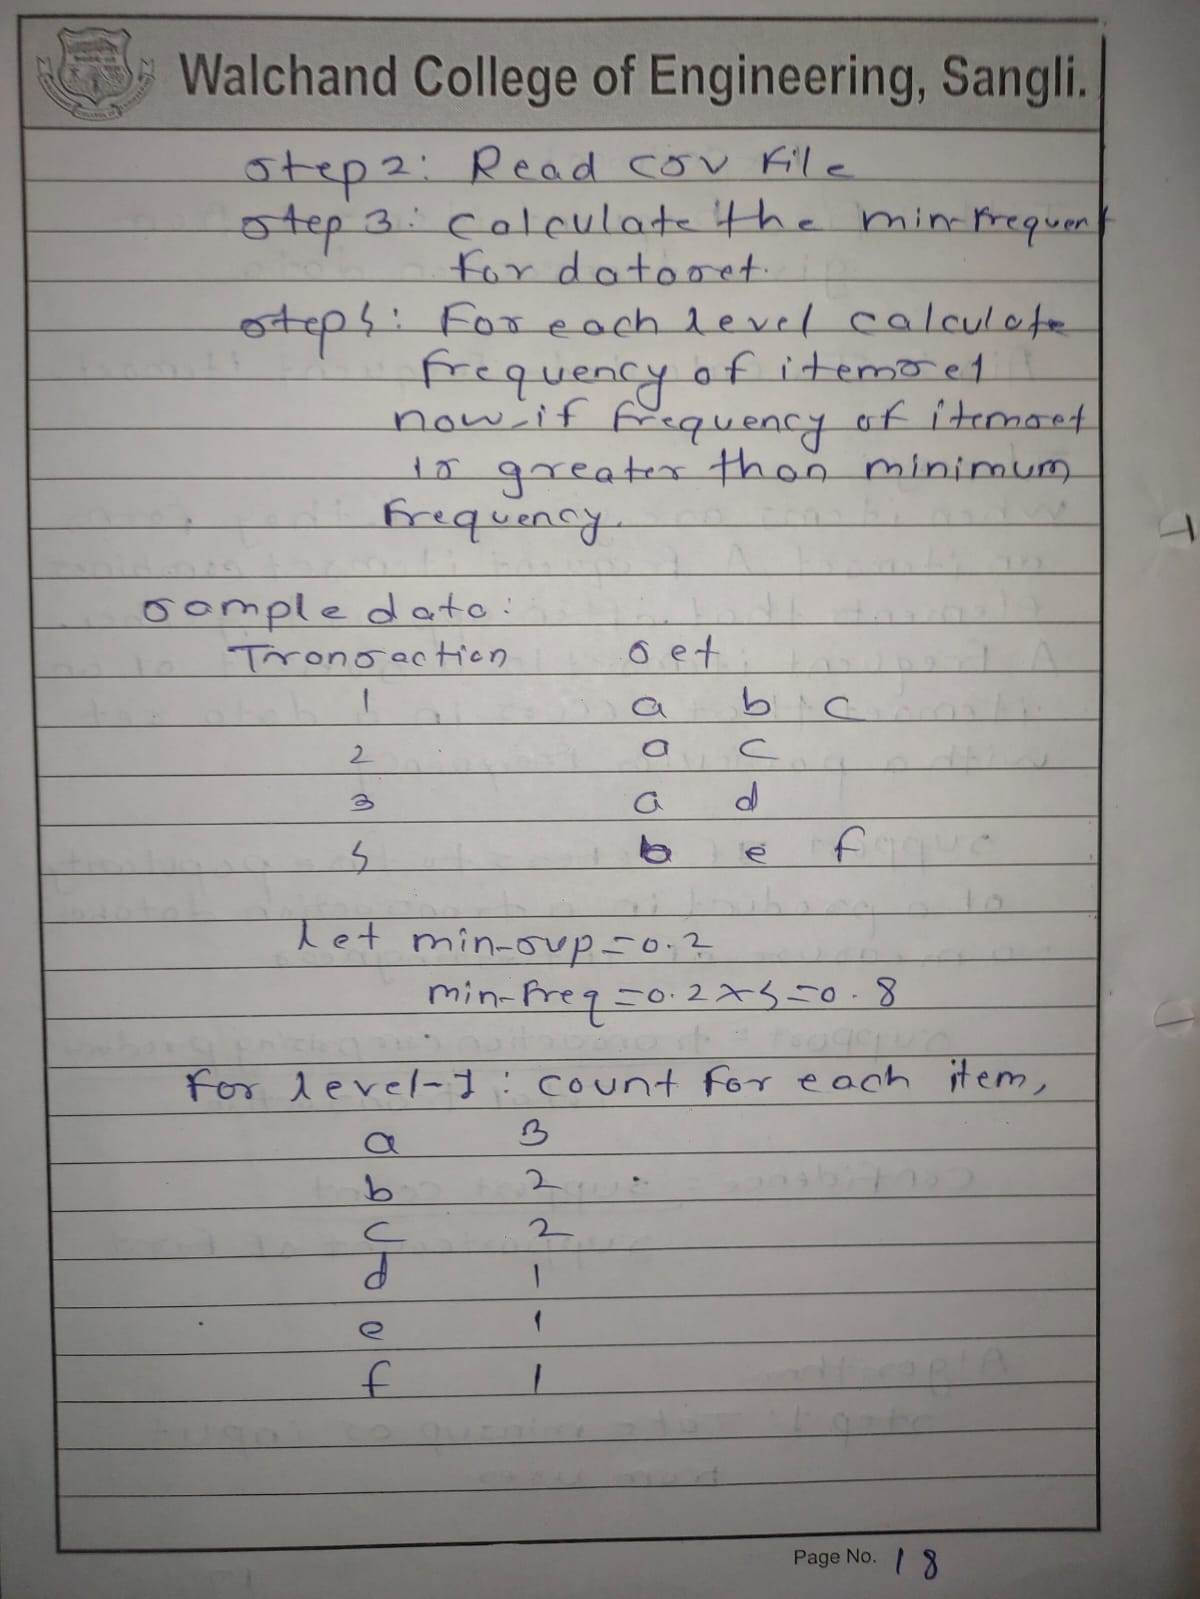 Walchand College of Engineering, Sangli.
step 2: Read csv file
step 3: calculate the min-frequent
for dataset.
step 4: For each level calculate
frequency of itemset
now if frequency of itemset
is greater than minimum
frequency.
sample data:
Transaction set
1 a b c
2 a c
3 a d
4 b e f
let min-sup=0.2
min-freq=0.2×4=0.8
for level-1: count for each item,
a 3
b 2
c 2
d 1
e 1
f 1
Page No. 18